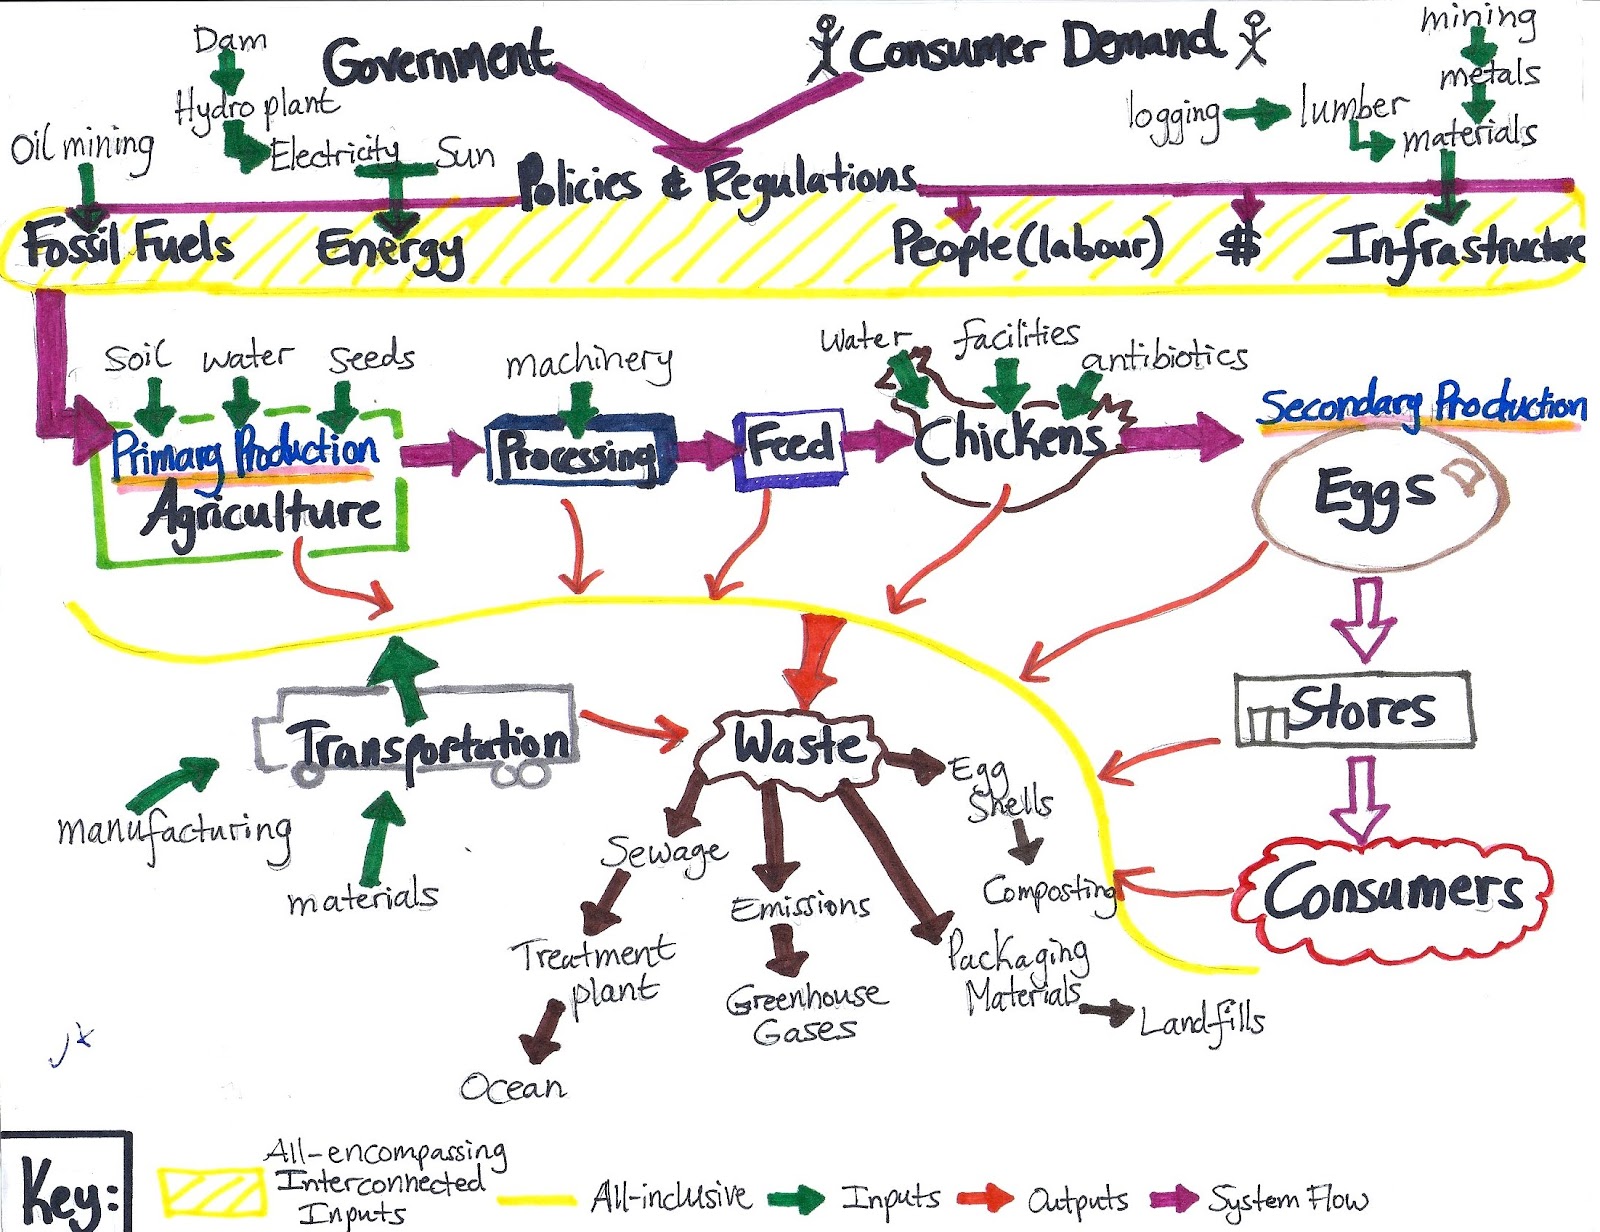 Dam
Government
Consumer Demand
mining
metals
Hydro plant
logging
lumber
materials
Oil mining
Electricity
Sun
Policies & Regulations
Fossil Fuels
Energy
People (labour)
$
Infrastructure
Soil
water
Seeds
machinery
water
facilities
antibiotics
Secondary Production
Primary Production
Agriculture
Processing
Feed
Chickens
Eggs
Stores
Transportation
Waste
Egg
Shells
manufacturing
materials
Sewage
Composting
Consumers
Emissions
Treatment
plant
Packaging
Materials
Greenhouse
Gases
Landfills
Ocean
Key:
All-encompassing
Interconnected
Inputs
All-inclusive
Inputs
Outputs
System Flow